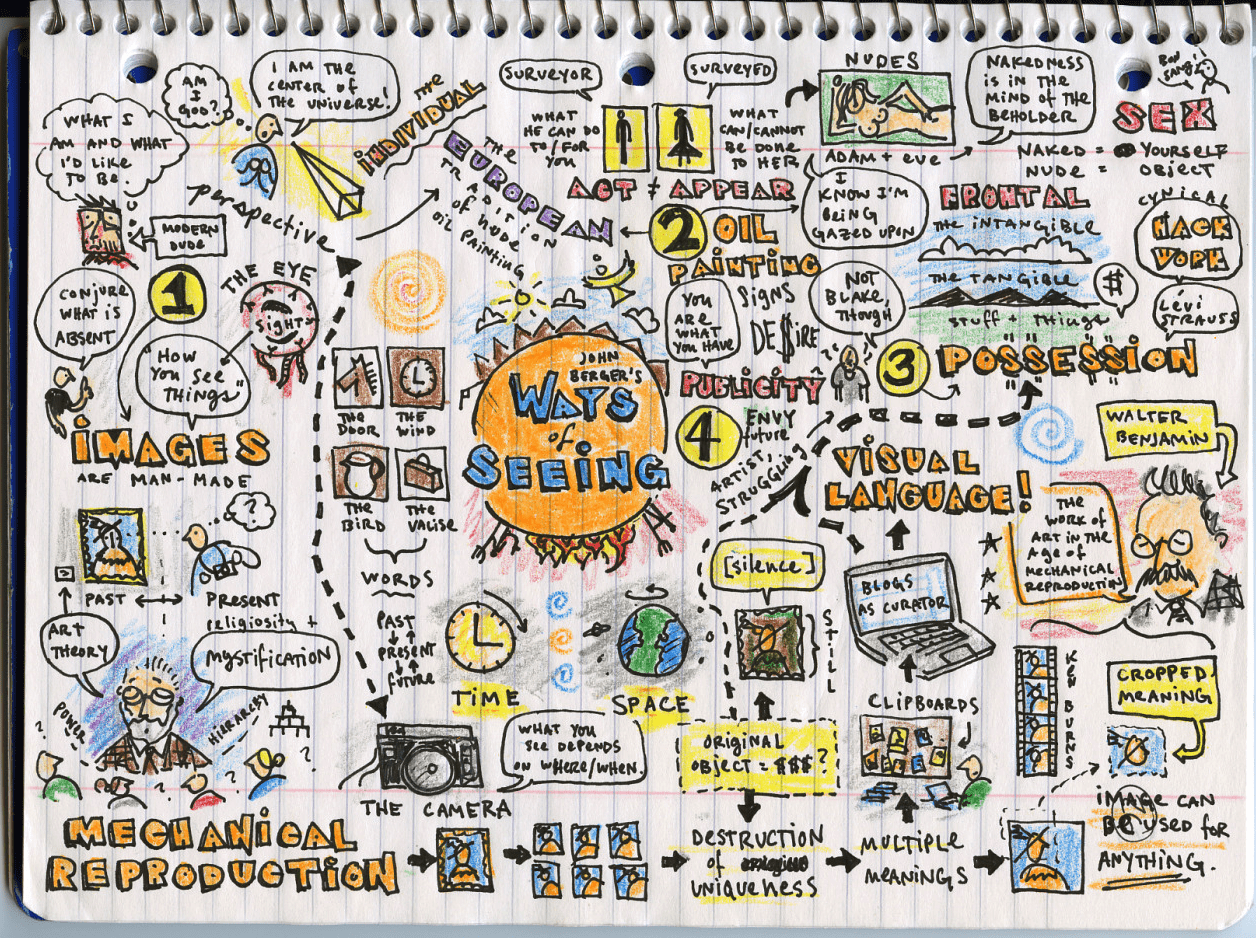 AM
I
GOOD?
I AM THE
CENTER OF
THE UNIVERSE!
WHAT I
AM AND WHAT
I'D LIKE
TO BE
perspective
MODERN
DUDE
THE
INDIVIDUAL
THE
EUROPEAN
TRADITION
of NUDE
OIL PAINTING
1
THE EYE
SIGHT
CONJURE
WHAT IS
ABSENT
"HOW
YOU SEE
THINGS"
IMAGES
ARE MAN-MADE
?
PAST
PRESENT
religiosity +
ART
THEORY
MYSTIFICATION
POWER
HIERARCHY
? ? ? ?
SURVEYOR
SURVEYED
WHAT
HE CAN DO
TO/FOR
YOU
WHAT
CAN/CANNOT
BE DONE
TO HER
ACT ≠ APPEAR
NUDES
ADAM + EVE
NAKEDNESS
IS IN THE
MIND OF THE
BEHOLDER
SEX
NAKED = YOURSELF
NUDE = OBJECT
I
KNOW I'M
BEING
GAZED UPON
2
OIL
PAINTING
SIGNS
DE$IRE
YOU
ARE
WHAT
YOU HAVE
NOT
BLAKE,
THOUGH
FRONTAL
THE INTANGIBLE
THE TANGIBLE
STUFF + THINGS
$
CYNICAL
HACK
WORK
LEVI
STRAUSS
3
POSSESSION
PUBLICITY
4
ENVY
future
ARTIST,
STRUGGLING
JOHN
BERGER'S
WAYS
of
SEEING
THE
DOOR
THE
WIND
THE
BIRD
THE
VALISE
WORDS
PAST
PRESENT
future
TIME
SPACE
WHAT YOU
SEE DEPENDS
ON WHERE/WHEN.
THE CAMERA
VISUAL
LANGUAGE!
WALTER
BENJAMIN
THE
WORK OF
ART IN THE
AGE OF
MECHANICAL
REPRODUCTION
[silence]
STILL
BLOGS
AS CURATOR
CLIPBOARDS
KEN BURNS
CROPPED
MEANING
ORIGINAL
OBJECT = $$$?
MECHANICAL
REPRODUCTION
DESTRUCTION
of
UNIQUENESS
MULTIPLE
MEANINGS
IMAGE CAN
BE USED FOR
ANYTHING.